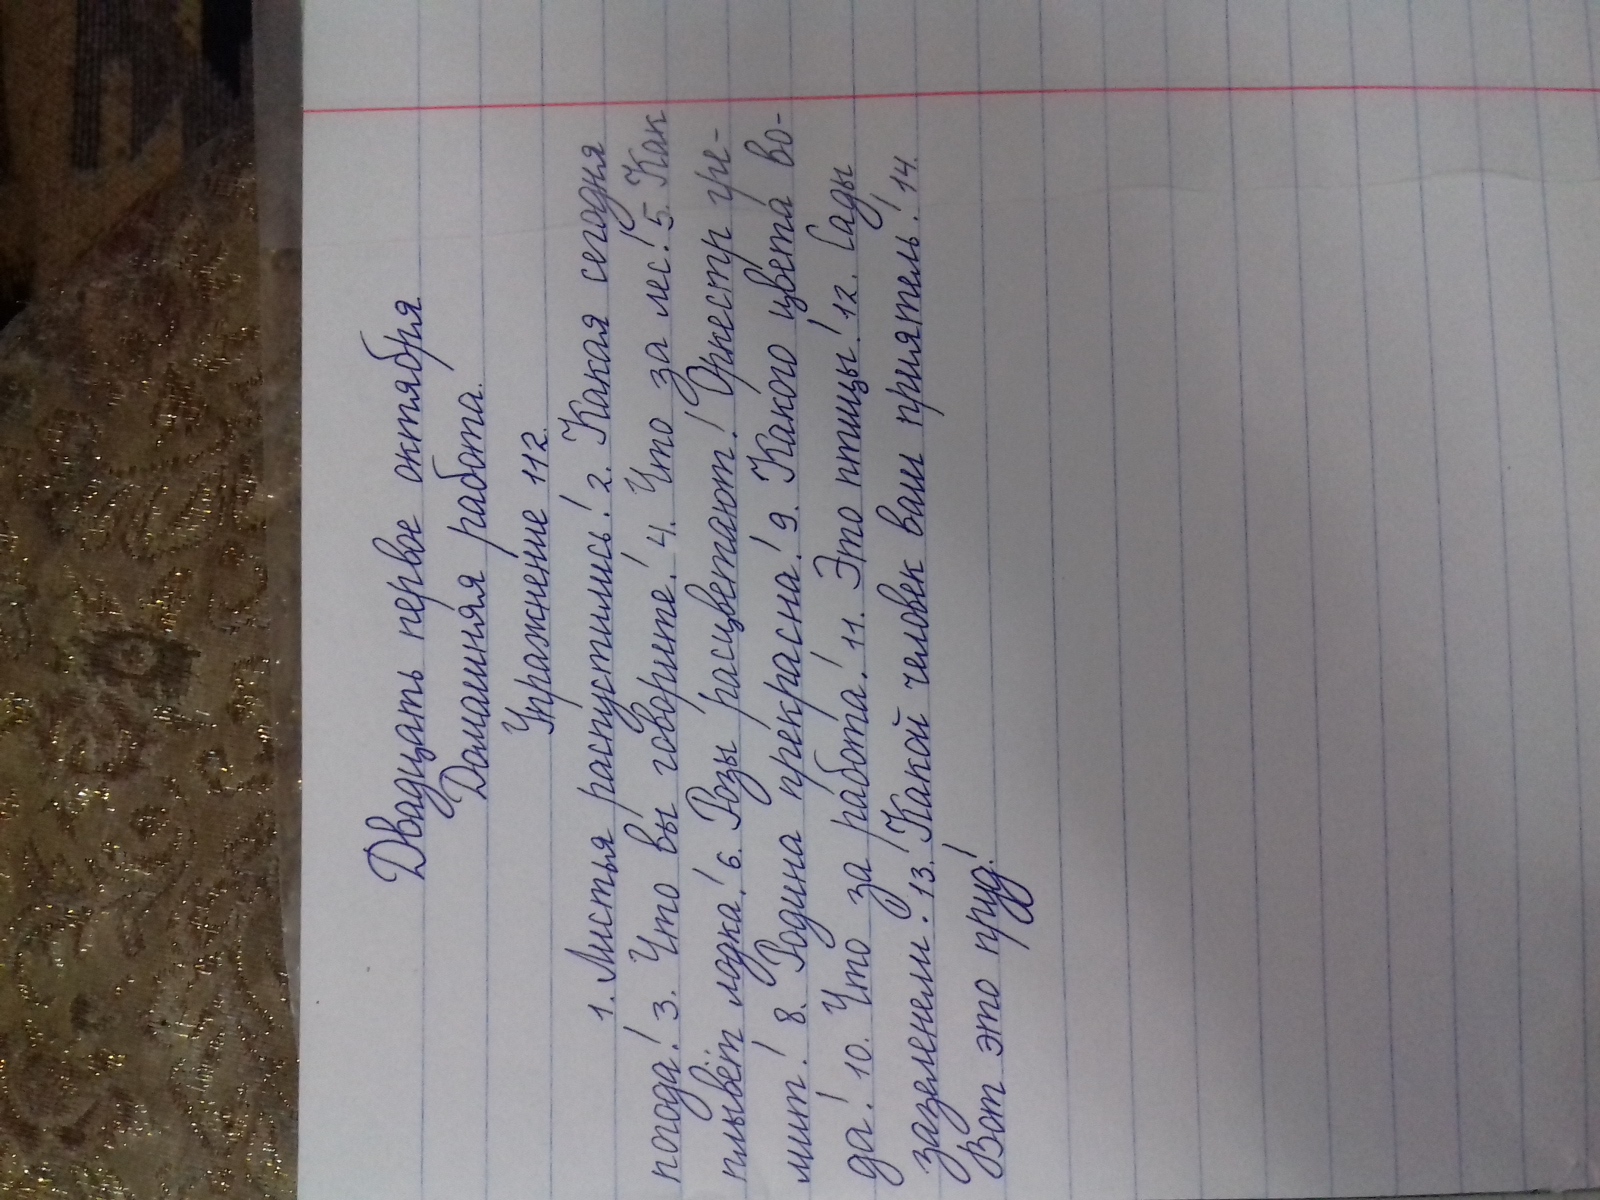 Двадцать первое октября
Домашняя работа.
Упражнение 112.
1. Листья распустились! 2. Какая сегодня
погода! 3. Что вы говорите! 4. Что за лес! 5. Как
плывёт лодка! 6. Розы расцветают! Оркестр гре-
мит! 8. Родина прекрасна! 9. Какого цвета во-
да! 10. Что за работа! 11. Это птицы! 12. Сады
зазеленели. 13. Какой человек ваш приятель! 14.
Вот это пруд!